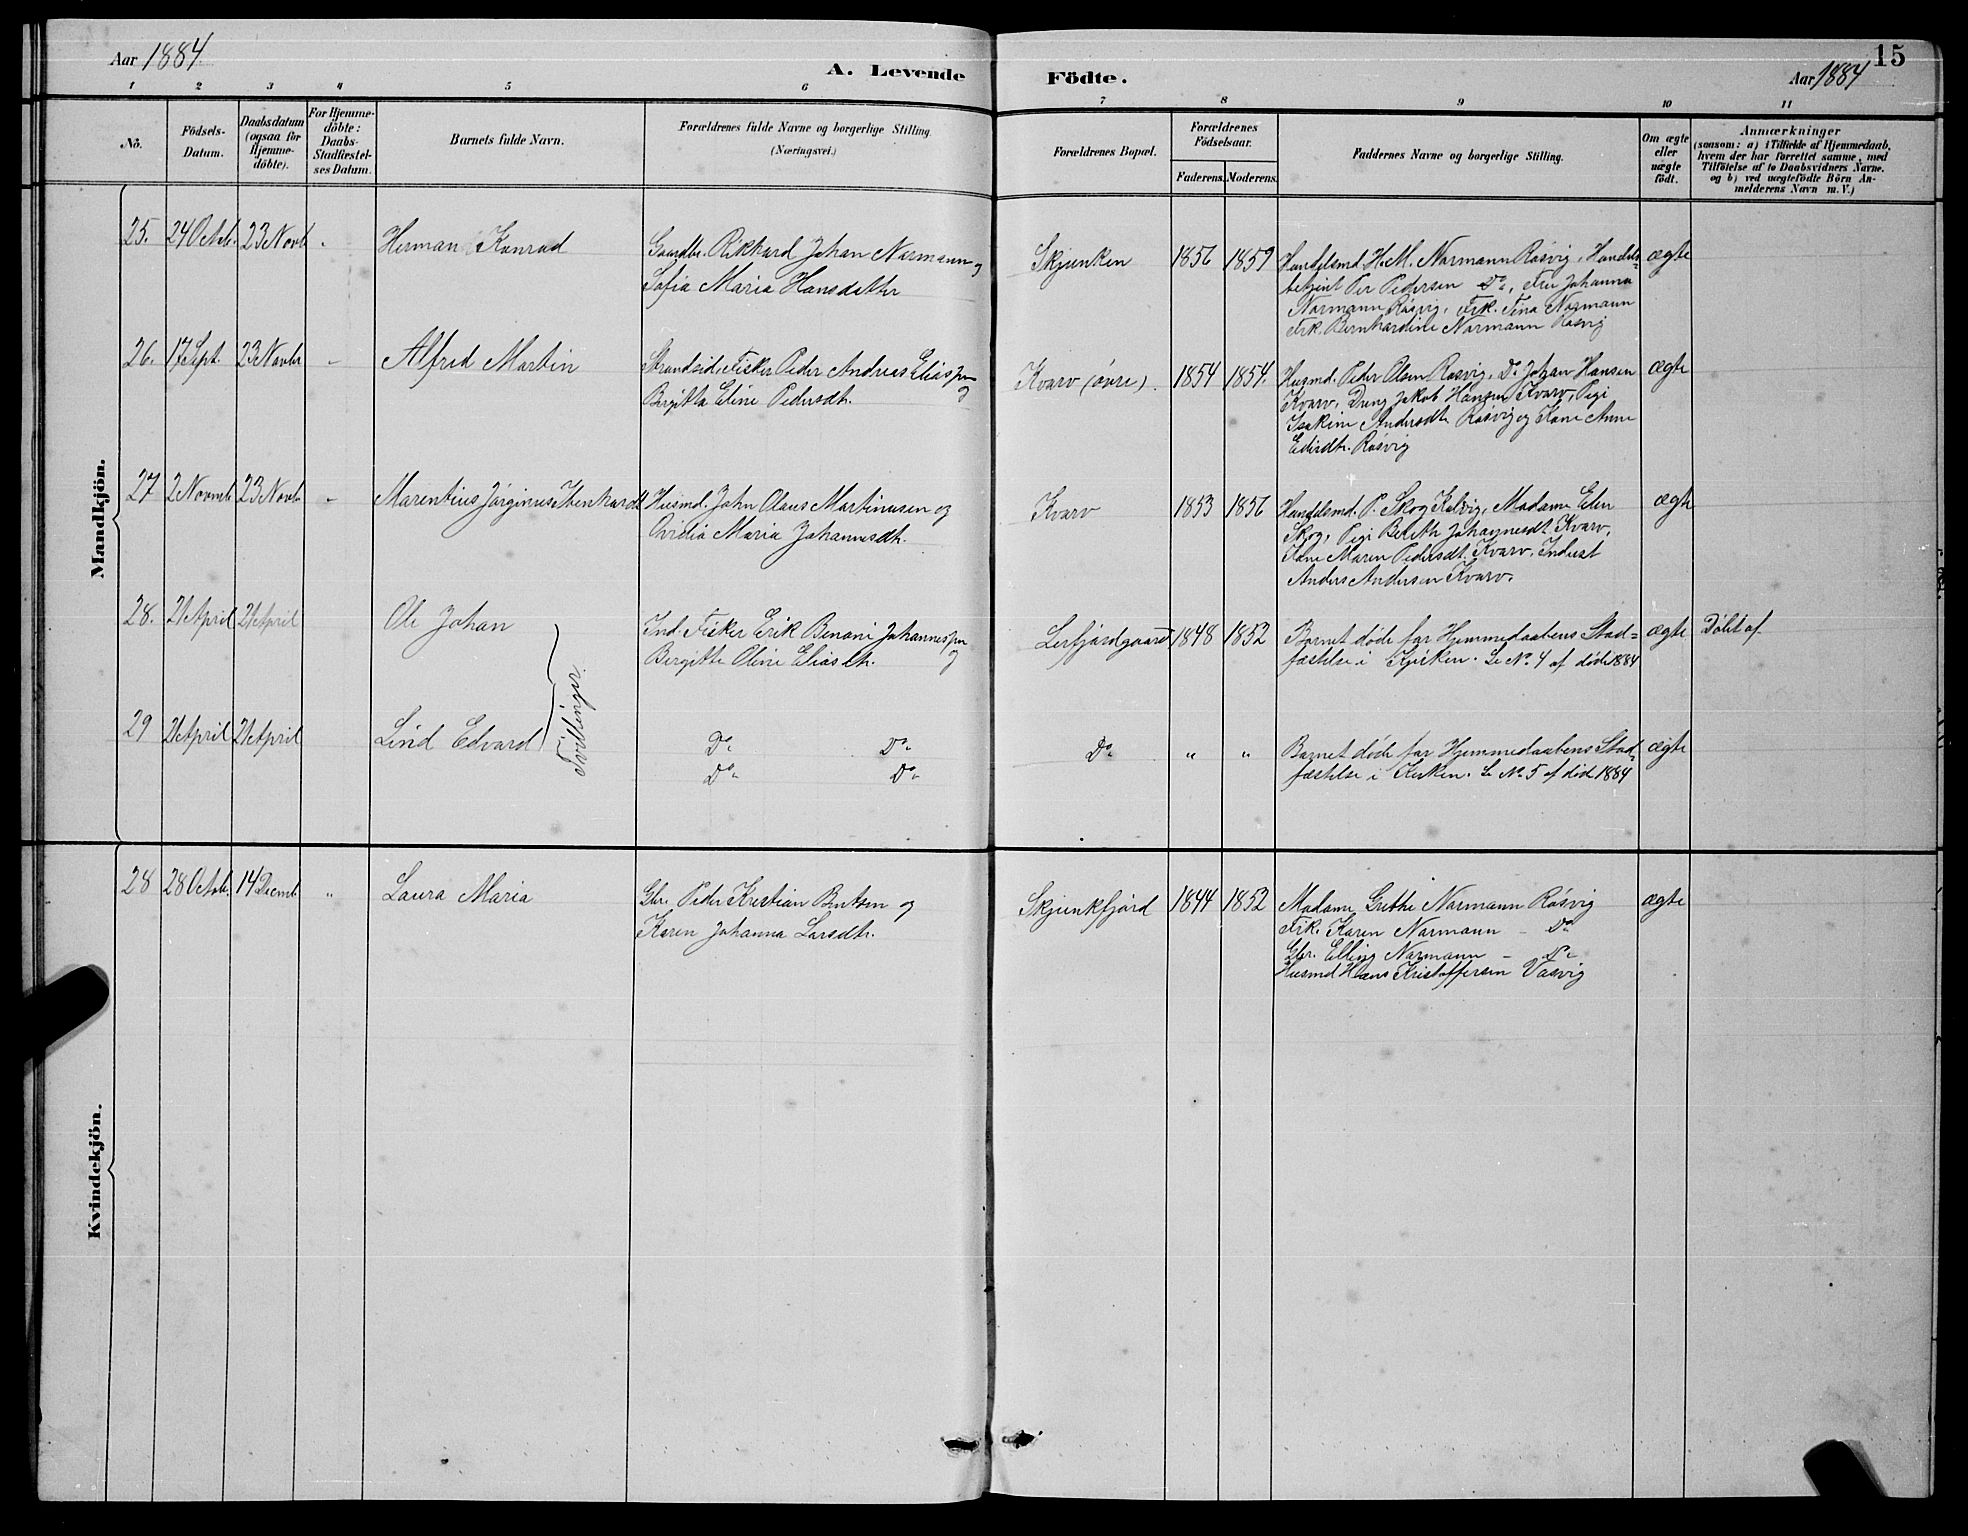 15
Aar 1884
A. Levende Födte.
Aar 1884
1 2 3 4 5 6 7 8 9 10 11
No.
Födsels-Datum.
Daabsdatum (ogsaa for Hjemme-döbte).
For Hjemme-döbte: Daabs-Stadfæstel-ses Datum.
Barnets fulde Navn.
Forældrenes fulde Navne og borgerlige Stilling.
(Næringsvei.)
Forældrenes Bopæl.
Forældrenes Födselsaar.
Faderens. Moderens.
Faddernes Navne og borgerlige Stilling.
Om ægte eller uægte födt.
Anmærkninger
(saasom: a) i Tilfælde af Hjemmedaab,
hvem der har forrettet samme, med
Tilföielse af to Daabsvidners Navne.
og b) ved uægtefödte Börn An-
melderens Navn m. V.)
Mandkjön.
25. 24 Octb. 23 Novb. Herman Konrad
Gaardbr. Rikhard Johan Normann og
Sofia Maria Hansdatter
Skjunken 1856 1859
Handelsmd. H. M. Normann Røsvig, Handels=
betjent Per Pedersen Do, Fru Johanna
Normann Røsvig, Frk. Tina Normann
Frk. Bernhardine Normann Røsvig
ægte
26. 17 Sept. 23 Novbr - Alfred Martin
Strandsid. Fisker Peder Andreas Eliassen og
Bergitta Eline Pedersdt.
Kvarv (øvre) 1854 1854.
Husmd. Peder Olsen Røsvig, Do Johan Hansen
Kvarv, Dreng Jakob Hansen Kvarv, Pigi
Isakine Andersdtr Røsvig og Kone Anne
Røsvig
ægte
27 2 Novmb 23 Novb - Marentius Jørginus
Husmd. John Olaus Martinusen og
Maria Johannesdtr.
Kvarv 1853 1856
Handelsmd. P. Skog Kalvig, Madame Elen
Skog, Pigi Berith Johannesdt. Kvarv,
Kone Maren Pedersdt. Kvarv, Inderst
Anders Andersen Kvarv.
ægte
28. 21 April 21 April Ole Johan
Ind. Fisker Erik Benoni Johannessen og
Bergitte Oline Eliasdtr.
Leifjordgaard 1848 1852
Barnet døde før Hjemmedaabens Stad=
fæstelse i Kirken. Se No. 4 af døde 1884
ægte Døbt af
Tvillinger.
29 21 April 21 April Lind Edvard
Do Do
Do Do
Do " "
Barnet døde før Hjemmedaabens Stad=
fæstelse i Kirken. Se No. 5 af død 1884
ægte
Kvindekjön.
28 28 Octob. 14 Decmb " Laura Maria
Gbr. Peder Kristian Bentsen og
Karen Johanna Larsdtr.
Skjunkfjord 1844 1852
Madame Grethe Normann Røsvig
Frk. Karen Normann - Do
Gbr. Elling Normann - Do
Husmd Hans Kristoffersen Vasvig
ægte